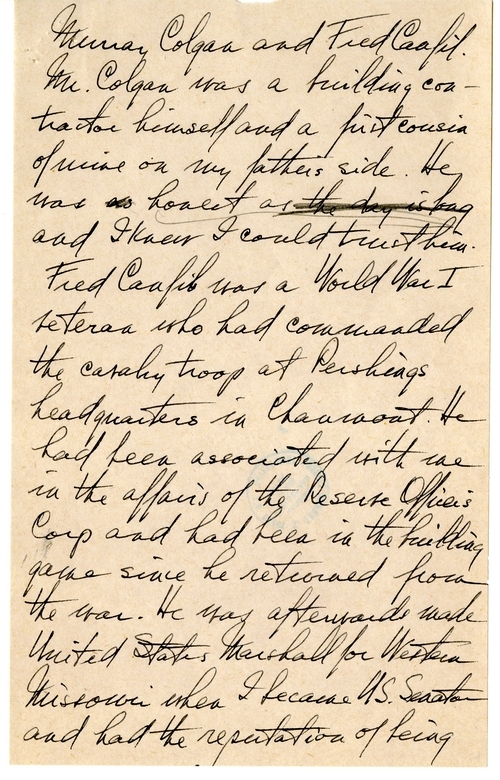 Murray Colgan and Fred Canfil.
Mr. Colgan was a building con-
tractor himself and a first cousin
of mine on my father's side. He
was as honest as the day is long
and I knew I could trust him.
Fred Canfil was a World War I
veteran who had commanded
the cavalry troop at Pershings
headquarters in Chaumont. He
had been associated with me
in the affairs of the Reserve Officers
Corp and had been in the building
game since he returned from
the war. He was afterwards made
United States Marshall for Western
Missouri when I became U.S. Senator
and had the reputation of being